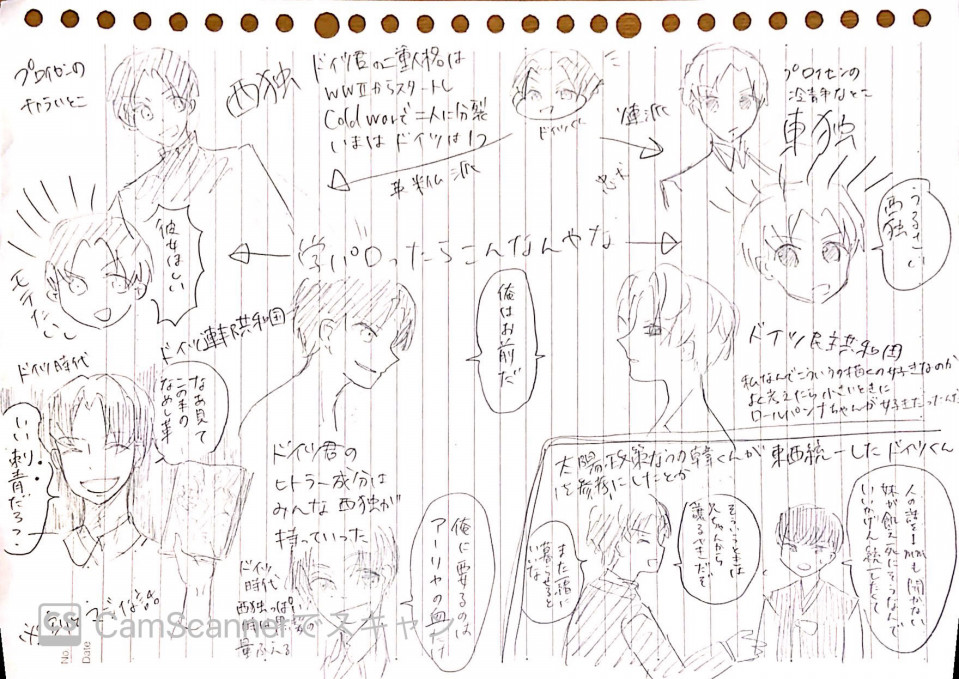 プロイセンの
チャラいとこ
西独
ドイツ君の二重人格は
WWⅡからスタートし
Cold warで二人に分裂
いまはドイツは1つ
ドイツくん
英米仏派
ソ連派
プロイセンの
冷静なとこ
東独
うるさいぞ
西独
彼女ほしい
モテたい
学パロったらこんなんやな
ドイツ連邦共和国
俺はお前だ
ドイツ民主共和国
私なんでこういうの描くの好きなのか
よく考えたら小さいときに
ロールパンナちゃんが好きだったんだ
ドイツ時代
なあ見て
この手の
なめし革
いい刺青だろ?
ドイツ君の
ヒトラー成分は
みんな西独が
持っていった
太陽政策な韓くんが東西統一したドイツくん
を参考にしたとか
人の話を1mmも聞かない
妹が飢え死にそうなんで
いいかげん
そういうときは
譲るべきだぞ
また一緒に
暮らせると
いいな
ドイツ
時代
西独っぽい
量ふえる
俺に要るのは
アーリヤの血だけ
No.
Date
CS CamScannerでスキャン